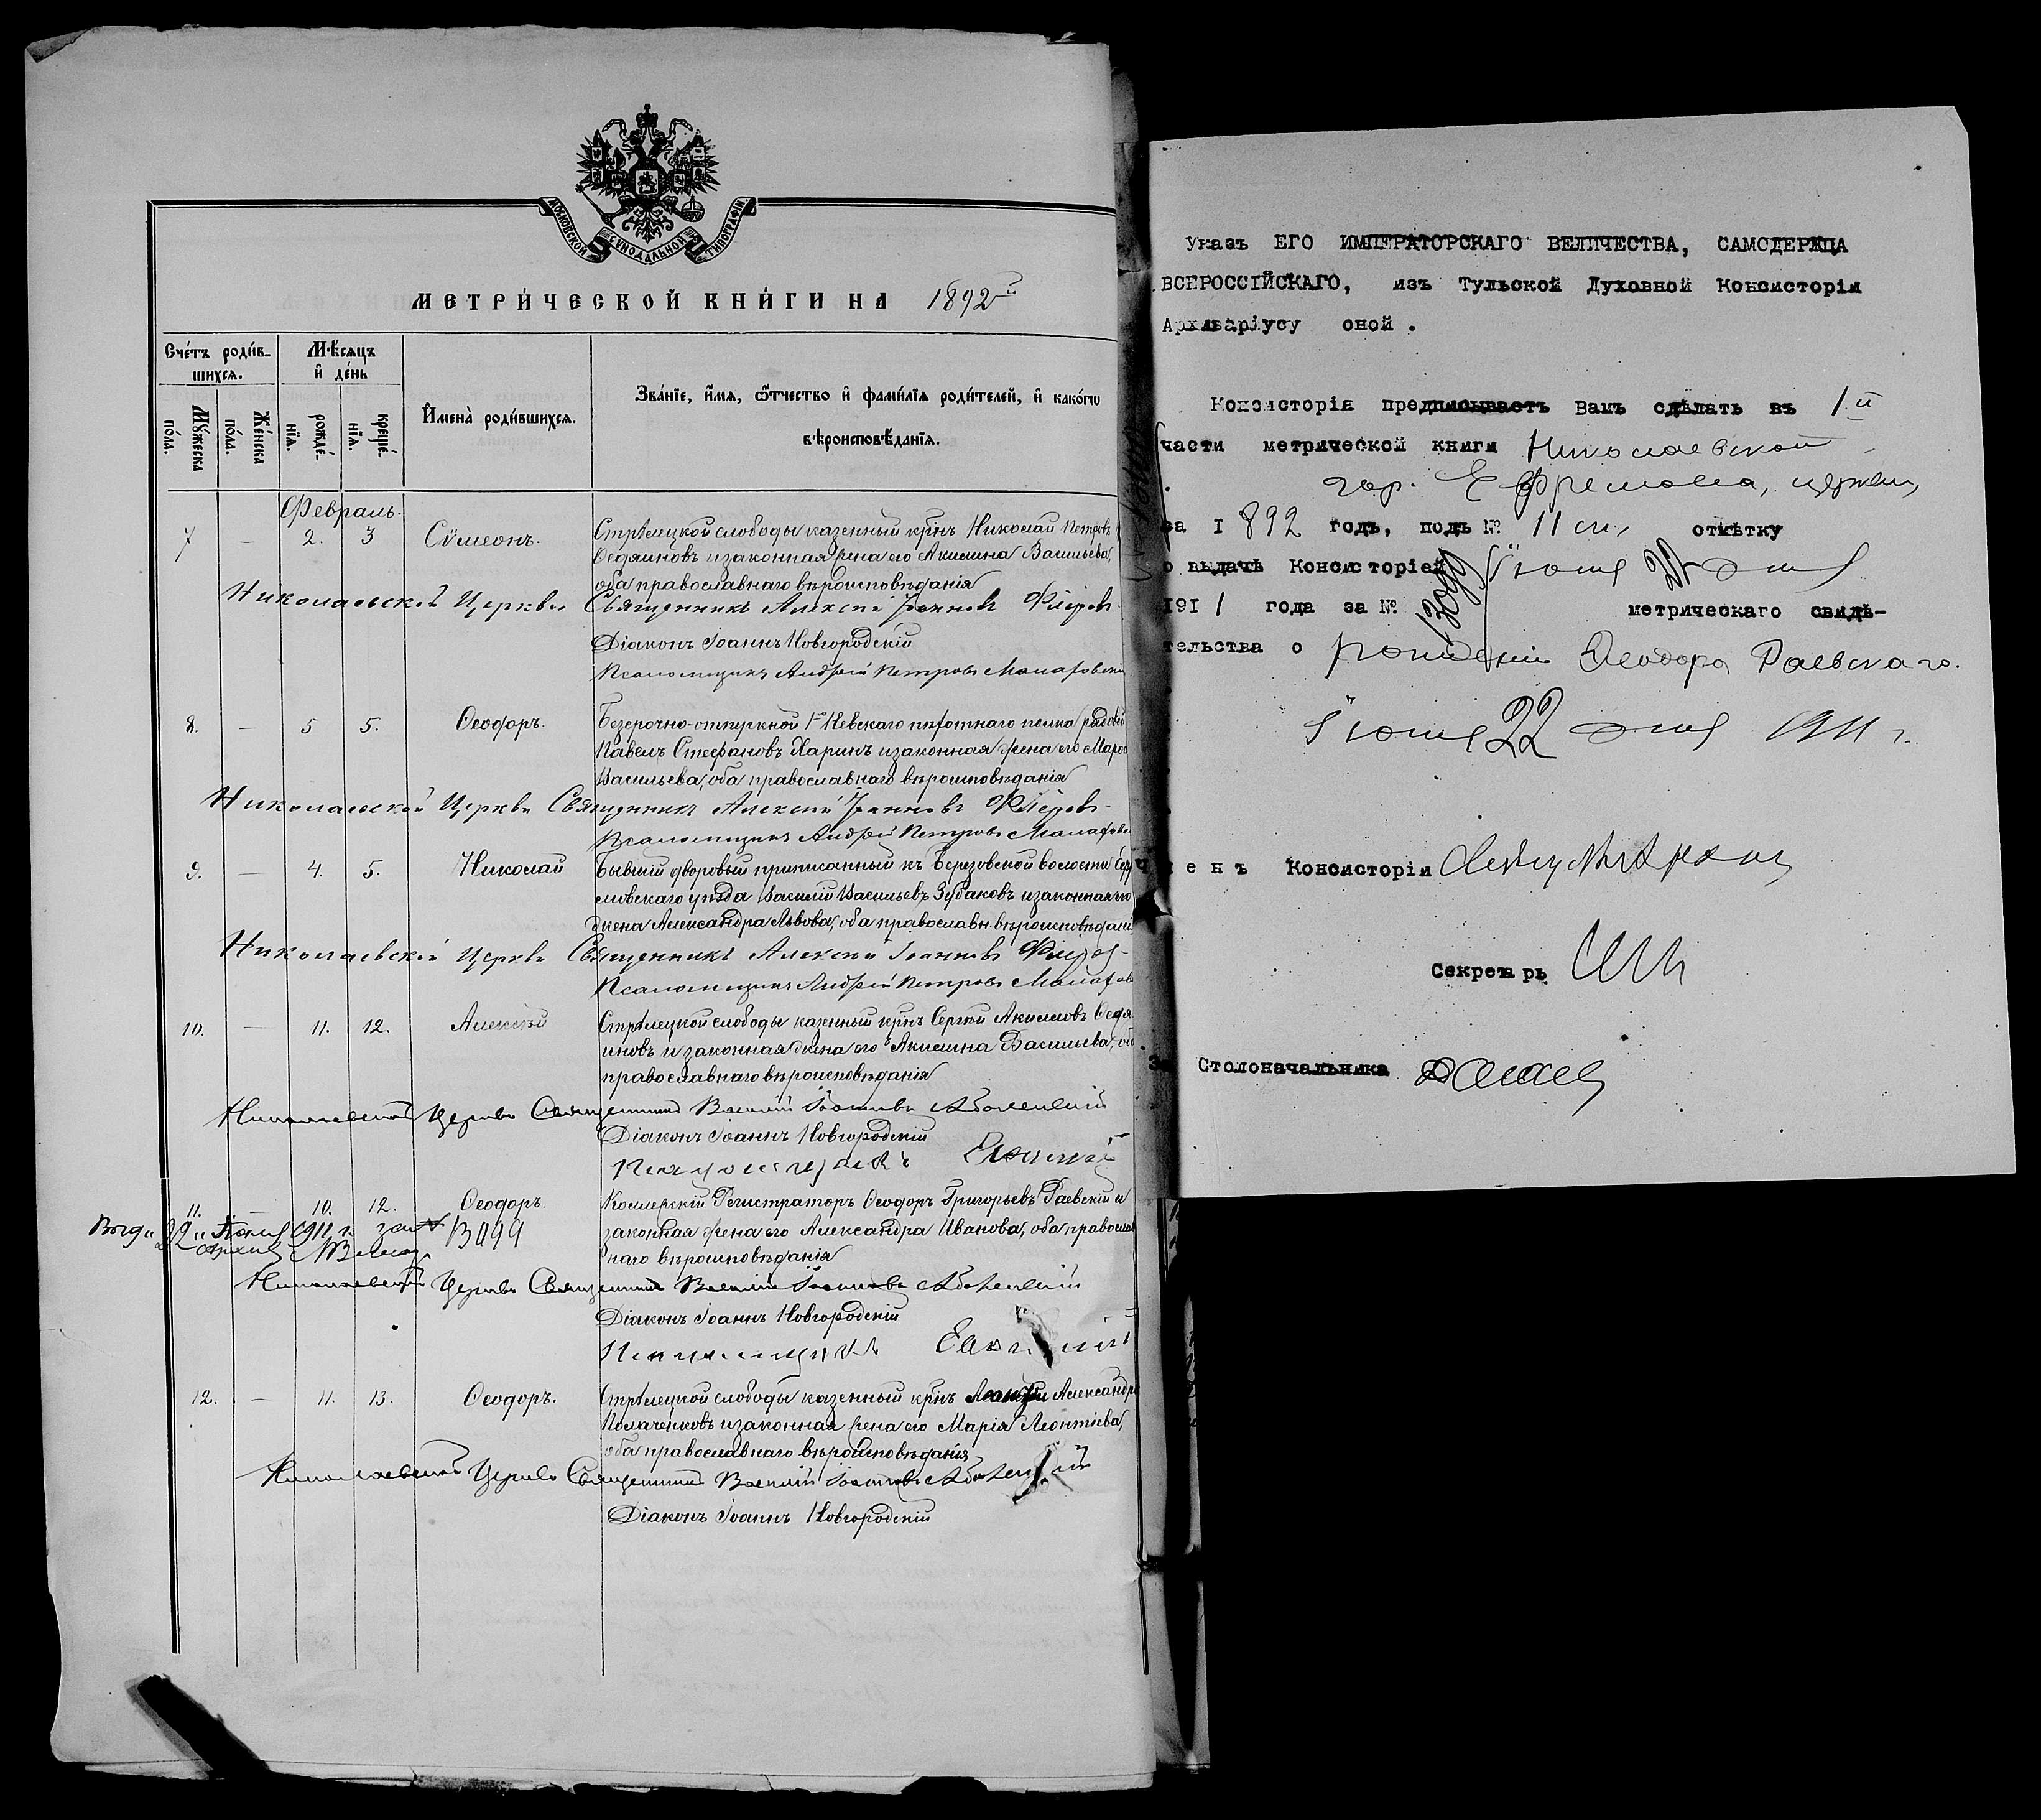 МОСКОВСКОЙ СѴНОДАЛЬНОЙ ТИПОГРАФІИ
МЕТРИ́ЧЕСКОЙ КНИ́ГИ НА 1892й
Сче́тъ роди́в-
шихсѧ.
Мꙋ́жеска
по́ла.
Же́нска
по́ла.
Мѣ́сѧцъ
и҆ де́нь
рожде́-
нїѧ.
креще́-
нїѧ.
И҆мена̀ роди́вшихсѧ.
Зва́нїе, и҆́мѧ, ѻ҆́тчество и҆ фами́лїѧ роди́телей, и҆ како́гѡ
вѣроисповѣ́данїѧ.
Февраль.
7 — 2. 3 Сѵмеонъ. Стрѣлецкой слободы казенный крнъ Николай Петровъ
Ѳедяиновъ и законная жена его Акилина Васильева,
оба православнаго вѣроисповѣданія
Николаевской Церкви Священникъ Алексій Іоанновъ Флёровъ
Діаконъ Іоаннъ Новгородскій
Псаломщикъ Андрей Петровъ
8. — 5 5. Ѳеодоръ. Безсрочно-отпускной 1го Невскаго пѣхотнаго полка рядовой
Павелъ Стефановъ Харинъ и законная жена его
Васильева, оба православнаго вѣроисповѣданія
Николаевской Церкви Священникъ Алексій Іоанновъ Флёровъ
Псаломщикъ Андрей Петровъ
9. — 4. 5. Николай Бывшій дворовый приписанный къ Березовской волости
словскаго уѣзда Василій Васильевъ Зубаковъ и законная его
жена Александра Львова, оба православн. вѣроисповѣданія
Николаевской Церкви Священникъ Алексій Іоанновъ Флёровъ
Псаломщикъ Андрей Петровъ
10. — 11. 12. Алексѣй Стрѣлецкой слободы казенный крнъ Сергѣй Акимовъ Ѳедя
иновъ и законная жена его Акилина Васильева, оба
православнаго вѣроисповѣданія
Николаевской Церкви Священникъ Василій Іоанновъ
Діаконъ Іоаннъ Новгородскій
Псаломщикъ
11. — 10. 12. Ѳеодоръ. Коллежскій Регистраторъ Ѳеодоръ Григорьевъ Раевскій и
законная жена его Александра Иванова, оба православ
наго вѣроисповѣданія
Выд. 22 Іюня 1911 г. за №
Николаевской Церкви Священникъ Василій Іоанновъ
Діаконъ Іоаннъ Новгородскій
Псаломщикъ
12. — 11. 13. Ѳеодоръ. Стрѣлецкой слободы казенный крнъ Александр
Полаченковъ и законная жена его Марія Леонтіева,
оба православнаго вѣроисповѣданія
Николаевской Церкви Священникъ Василій Іоанновъ
Діаконъ Іоаннъ Новгородскій
Указъ ЕГО ИМПЕРАТОРСКАГО ВЕЛИЧЕСТВА, САМОДЕРЖЦА
ВСЕРОССІЙСКАГО, изъ Тульской Духовной Консисторіи
Архиваріусу оной.
Консисторія предписываетъ Вамъ сдѣлать въ 1й
части метрической книги Николаевской
гор. Ефремова, церкви,
за 1892 годъ, подъ № 11 см., отмѣтку
о выдачѣ Консисторіей Іюня дня
1911 года за № метрическаго свидѣ-
тельства о рожденіи Ѳеодора Раевскаго.
Іюня 22 дня 1911 г.
Членъ Консисторіи
Секретарь
За Столоначальника